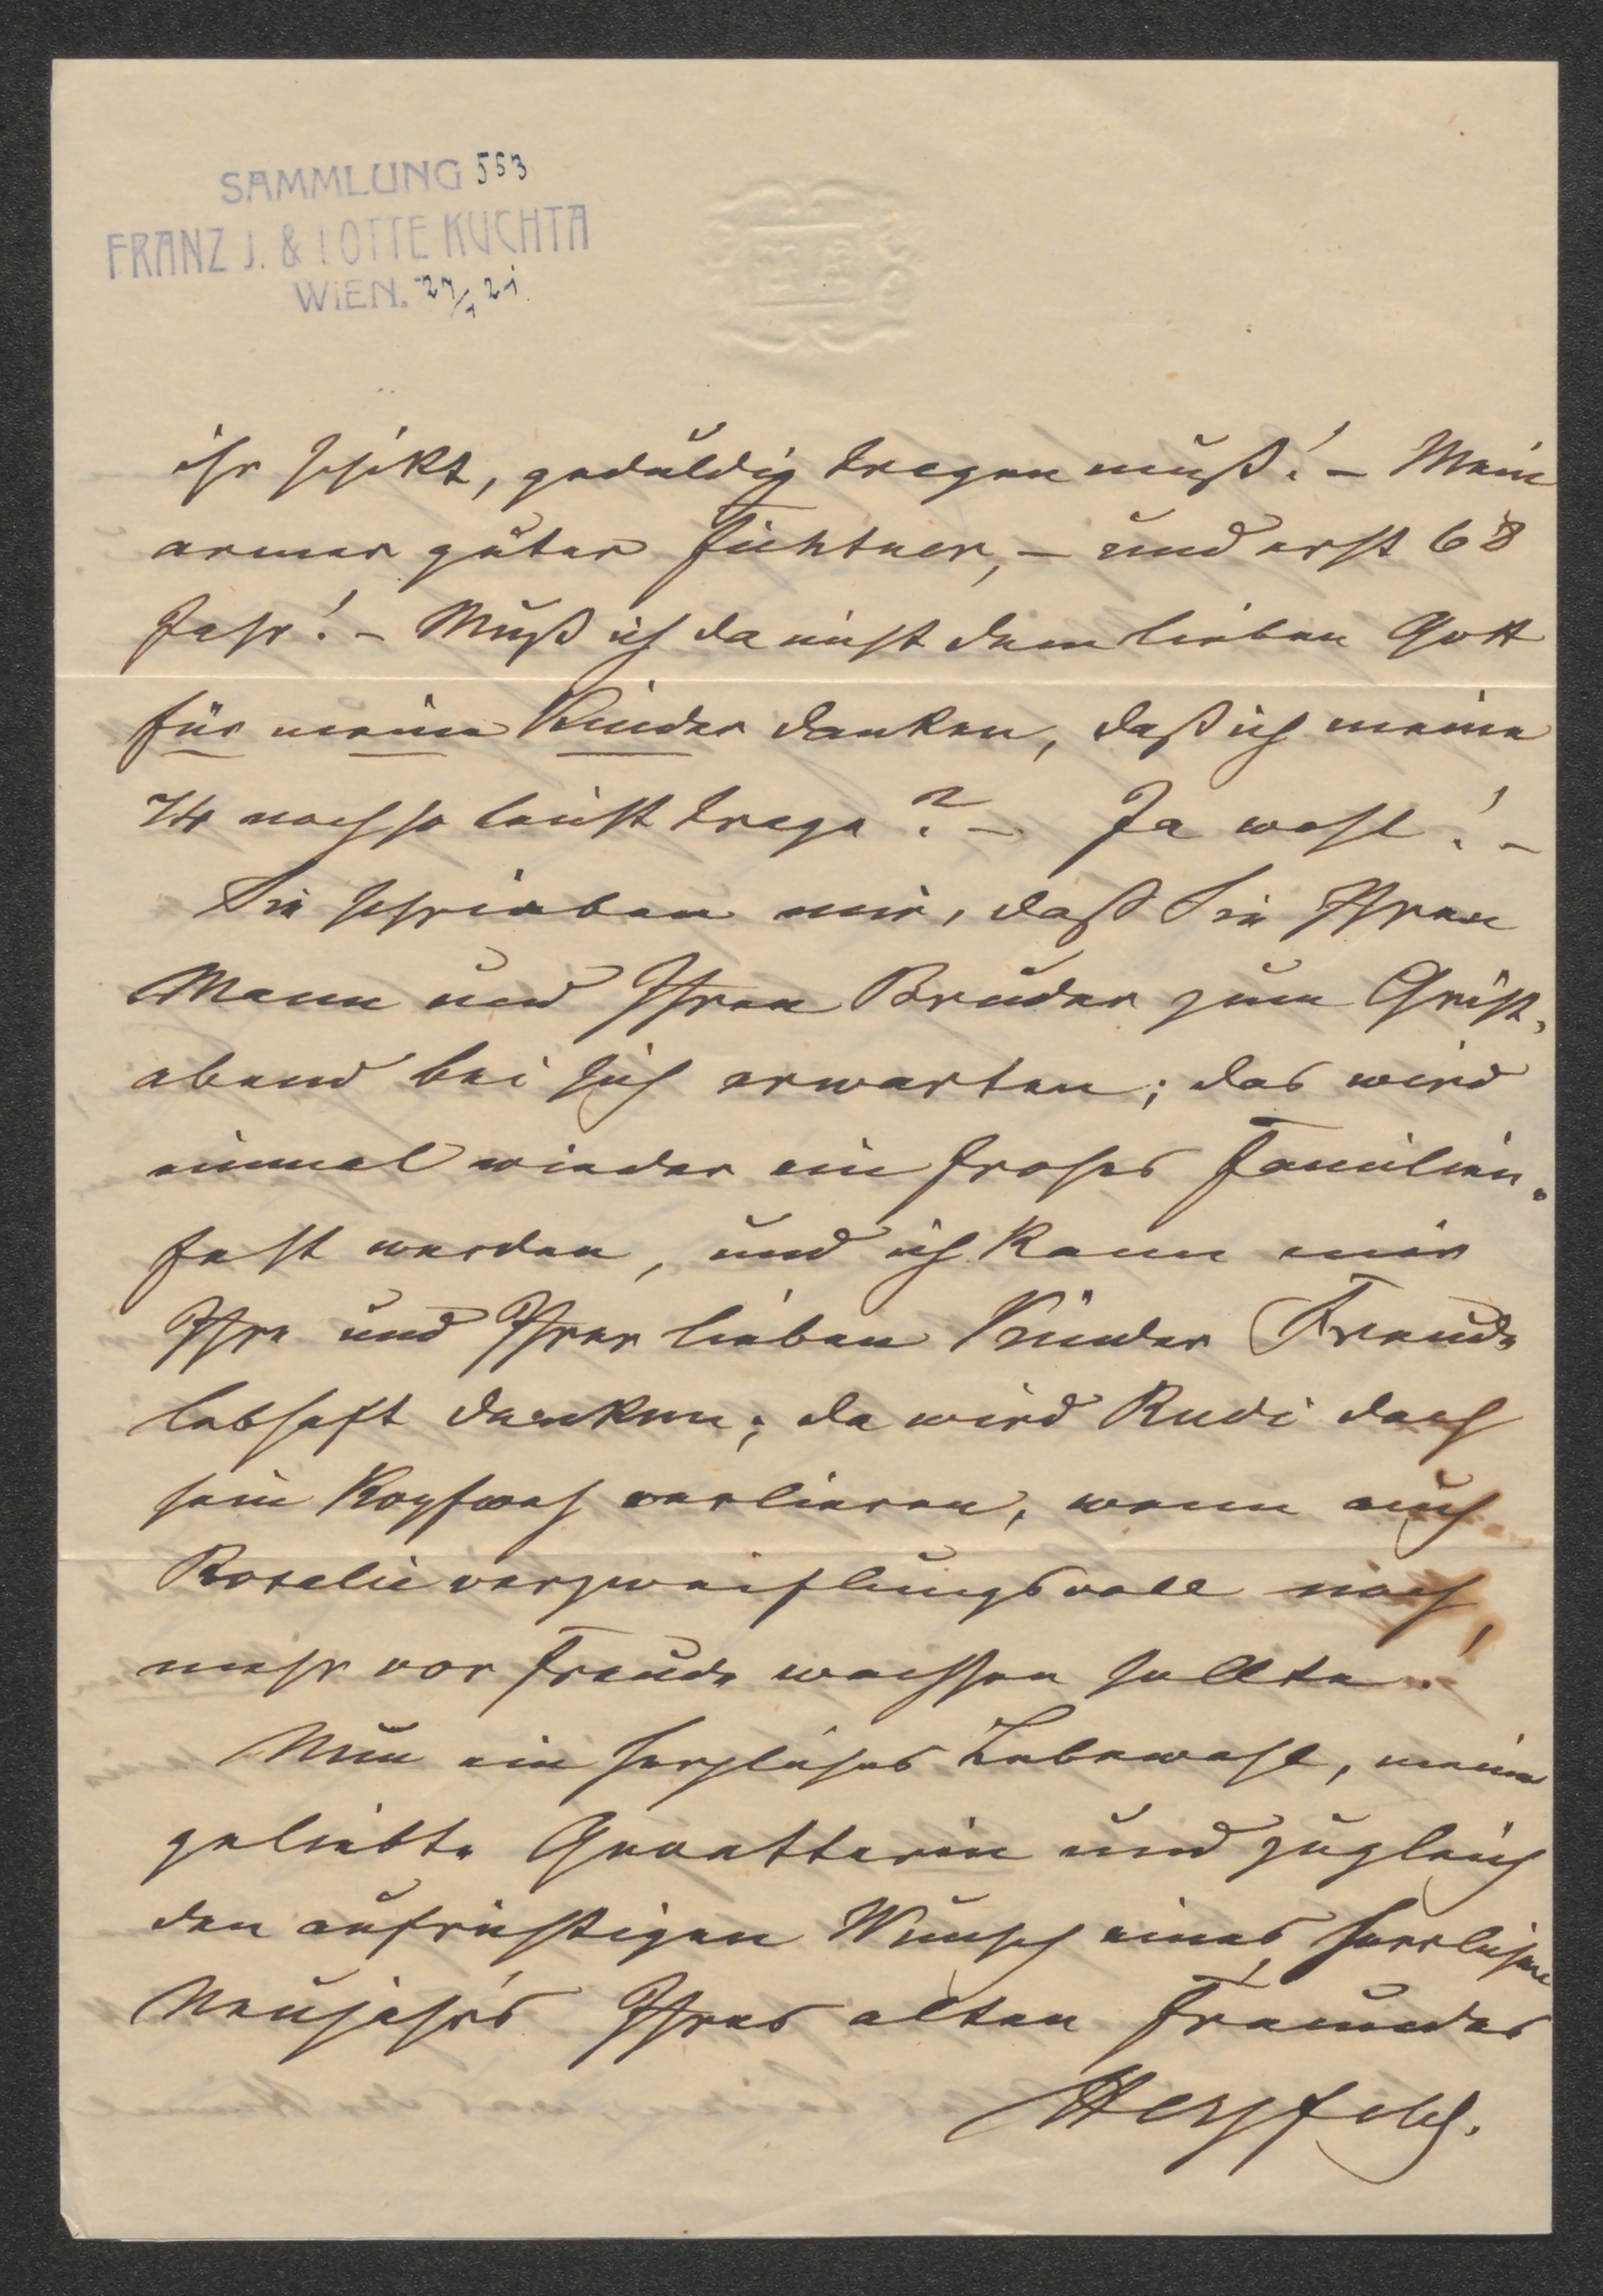 SAMMLUNG 553
FRANZ J. & LOTTE KUCHTA
WIEN. 27/1 21
ihr schikt, geduldig tragen muß! – Mein
armer guter Fichtner, – und erst 68
Jahr! – Muß ich da nicht dem lieben Gott
für meine Kinder danken, daß ich meine
74 noch so leicht trage? – Ja wohl! –
Sie schrieben mir, daß Sie Ihren
Mann und Ihren Bruder zum Christ-
abend bei sich erwarten; das wird
einmal wieder ein frohes Familien-
fest werden, und ich kann mir
Ihre und Ihrer lieben Kinder Freude
lebhaft denken; da wird Rudi doch
sein Kopfweh verlieren, wenn auch
Rosalie verzweiflungsvoll noch
mehr vor Freude wachsen sollte!
Nun ein herzliches Lebewohl, meine
geliebte Gevatterin und zugleich
den aufrichtigen Wunsch eines herrlichen
Neujahrs Ihres alten Freundes
Herzfeld.